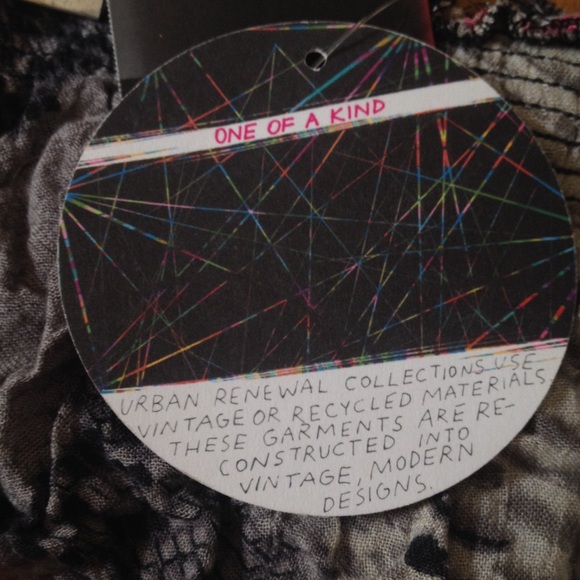 ONE OF A KIND
URBAN RENEWAL COLLECTIONS USE
VINTAGE OR RECYCLED MATERIALS
THESE GARMENTS ARE RE-
CONSTRUCTED INTO
VINTAGE, MODERN
DESIGNS.